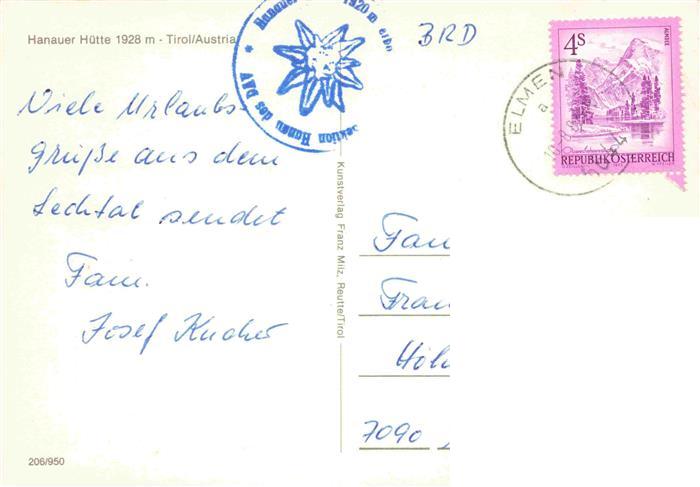 Hanauer Hütte 1928 m - Tirol/Austria
Hanauer 1920 m
Sektion Hanau des DAV
BRD
4S
ALMSEE
REPUBLIK ÖSTERREICH
ELMEN
Viele Urlaubs-
grüße aus dem
Lechtal sendet
Fam.
Josef
Kunstverlag Franz Milz, Reutte/Tirol
Fam
Fran
Höl
7090
206/950